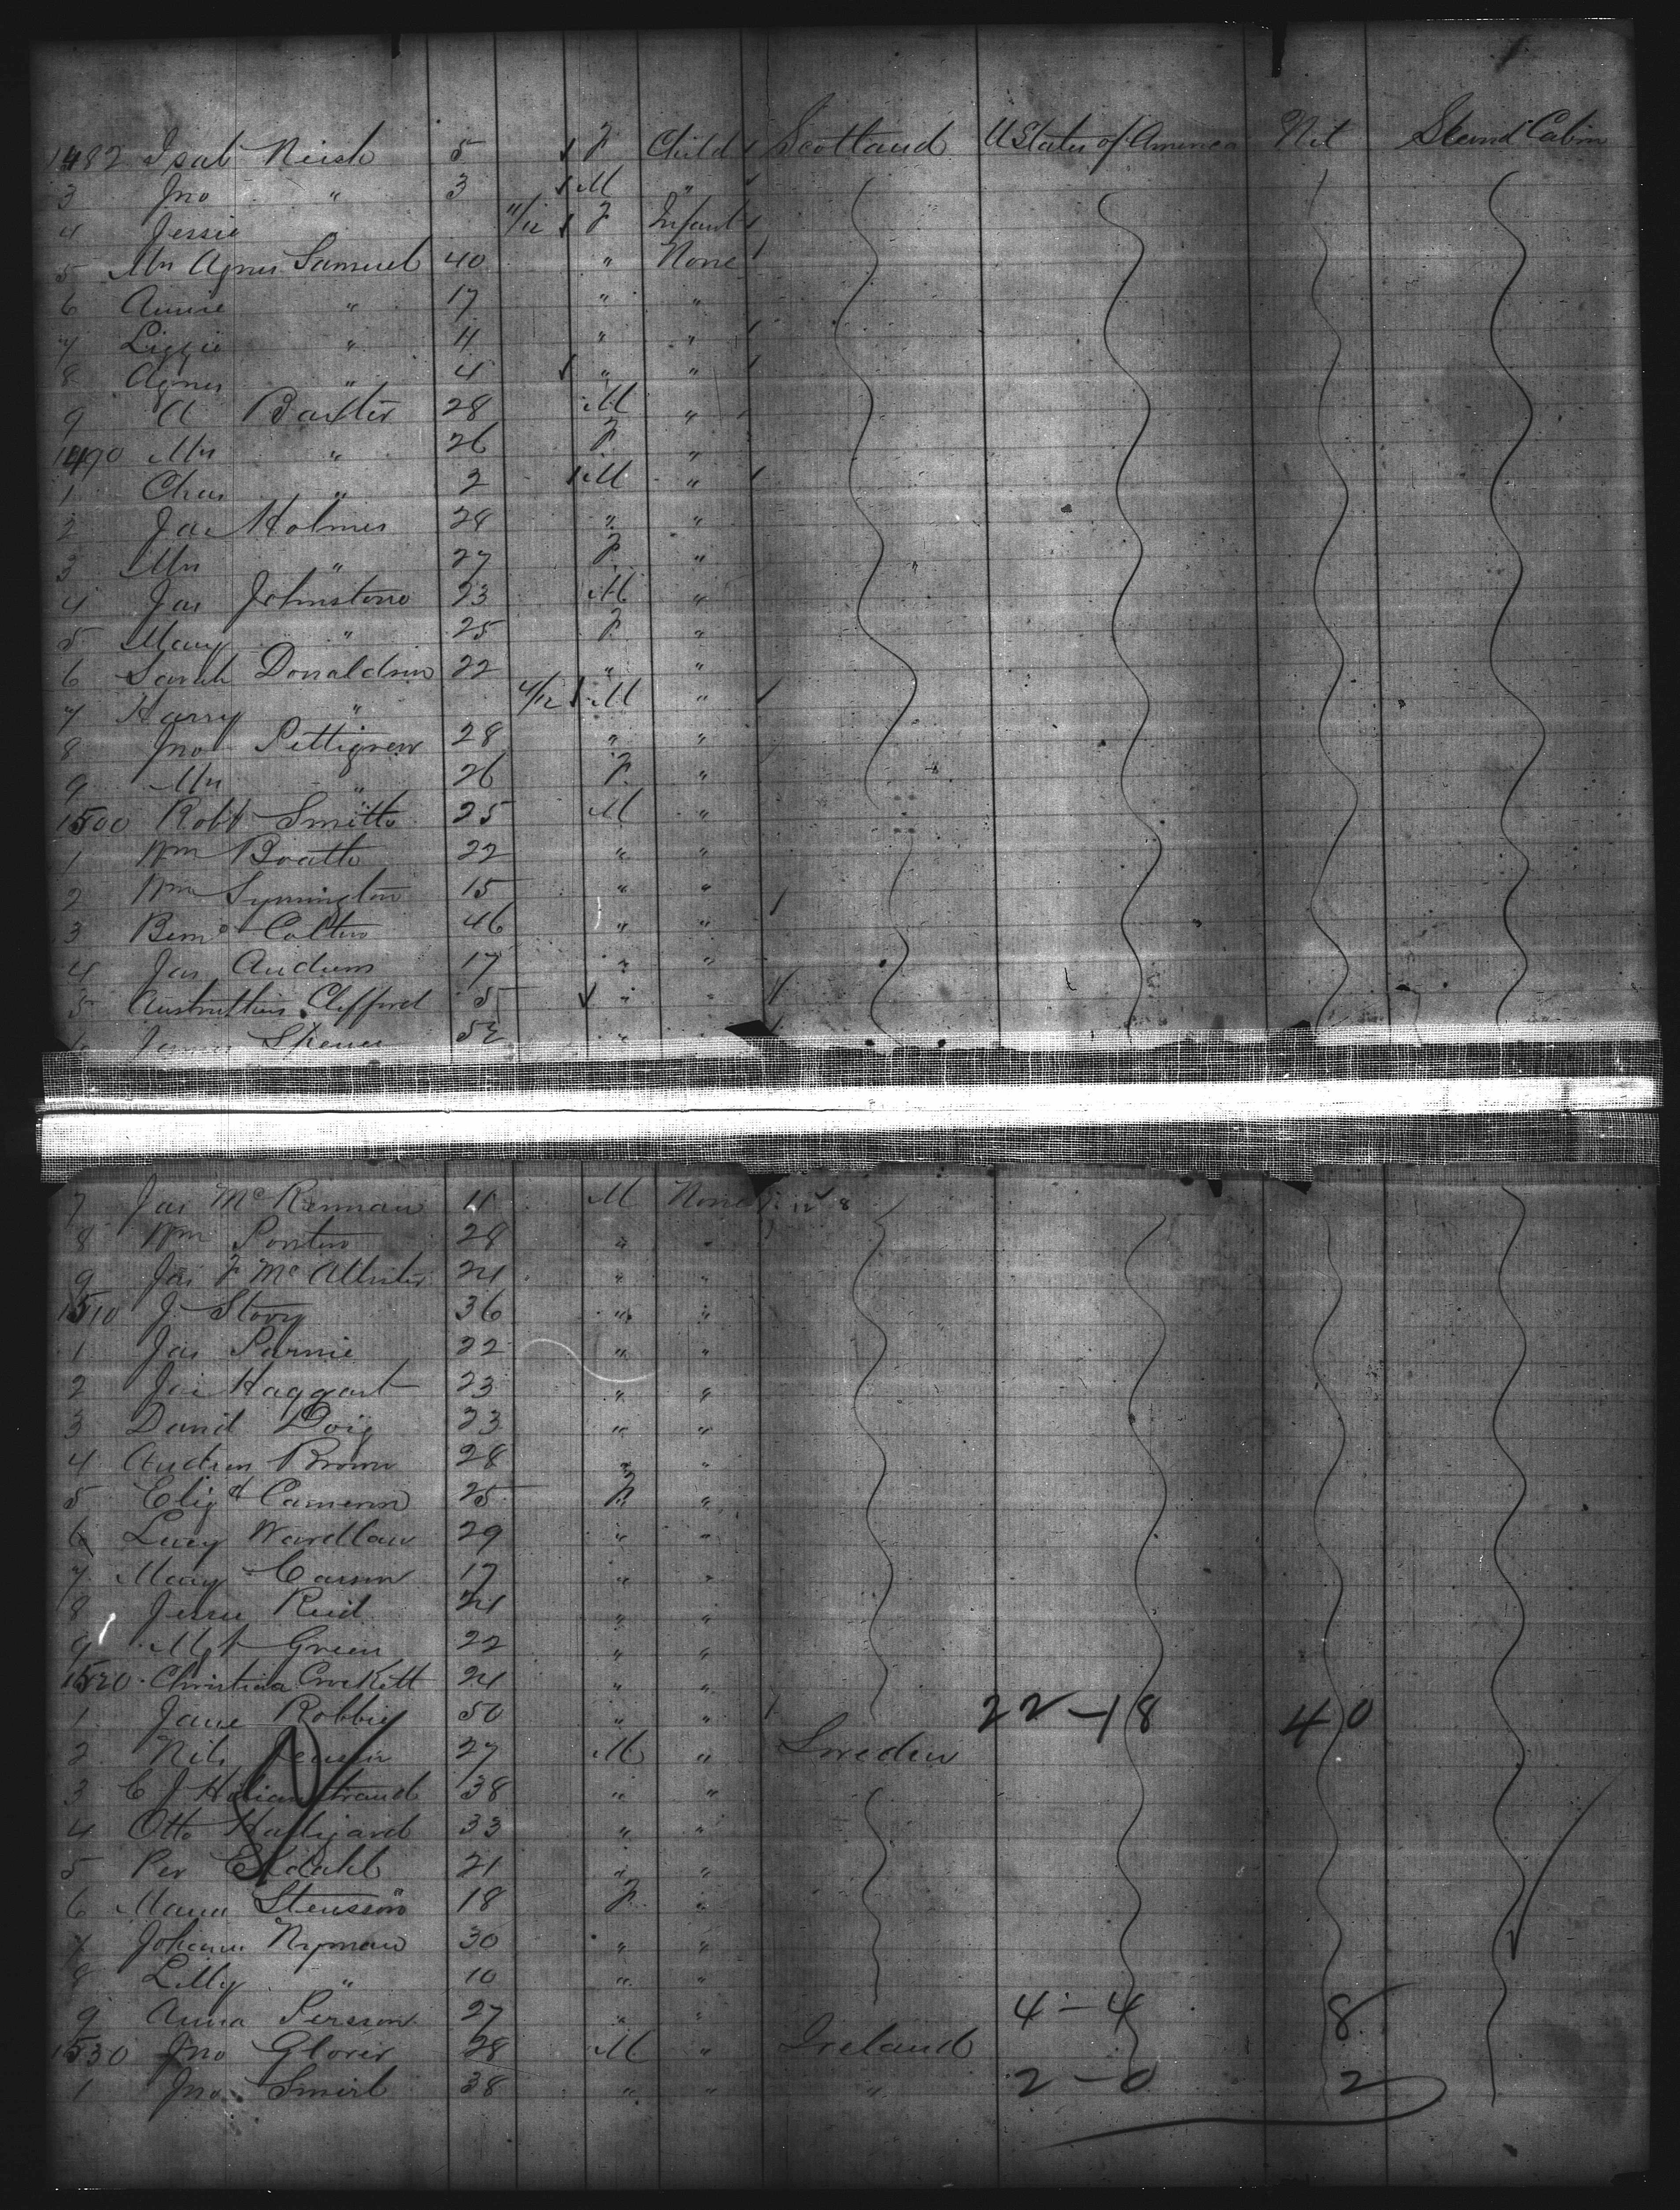 1482 Isab Neish 5 F Child Scotland U States of America Nil Steund Cabin
3 Jno " 3 M "
4 Jessie 11/12 F Infant
5 Mrs Agnes Samuel 40 " None
6 Annie " 17 " "
7 Lizzie " 11 " "
8 Agnes " 4 " "
9 A Baxter 28 M "
1490 Mrs " 26 F "
1 Chas " 2 M "
2 Jas Holmes 28 " "
3 Mrs " 27 F "
4 Jas Johnstone 23 M "
5 Mary " 25 F "
6 Sarah Donaldson 22 " "
7 Harry " 4/12 M "
8 Jno Pettigrew 28 " "
9 Mrs " 26 F "
1500 Robt Smith 25 M "
1 Wm 22 " "
2 Wm Symington 15 " "
3 46 " "
4 Jas 17 " "
5 Clifford " "
6 James 52 " "
7 Jas 11 M None
8 Wm 28 " "
9 Jas F McAllister 24 " "
1510 J Story 36 " "
1 Jas 22 " "
2 Jas Haggart 23 " "
3 David Doig 23 " "
4 Andrew Brown 28 " "
5 Elizth Cameron 25 F "
6 Lucy Wardlaw 29 " "
7 Mary Carson 17 " "
8 Jessie Reid 24 " "
9 Mgt Green 22 " "
1520 Christina Crockett 24 " "
1 Jane Robbie 50 " " 22 - 18 40
2 Nils 27 M " Sweden
3 C J 38 " "
4 Otto 33 " "
5 Per Ekdahl 21 " "
6 Maria Stensson 18 F "
7 Johanna Nyman 30 " "
8 Lilly " 10 " "
9 Anna Persson 27 " " 4 - 4 8
1530 Jno Glover 28 M " Ireland
1 Jno 38 " " " 2 - 0 2